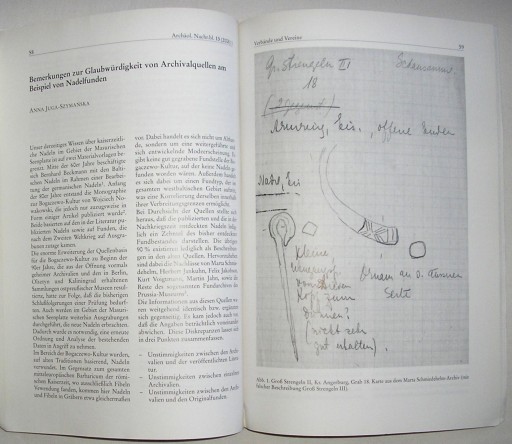 88
Archäol. Nachrbl. 10
Bemerkungen zur Glaubwürdigkeit von Archivalquellen am
Beispiel von Nadelfunden
ANNA JUGA-SZYMAŃSKA
Unser derzeitiges Wissen über kaiserzeitliche
Nadeln im Gebiet der Masurischen
Seenplatte ist auf zwei Materialvorlagen begrenzt.
Mitte der 60er Jahre beschäftigte
sich Bernhard Beckmann mit den Baltischen
Nadeln im Rahmen einer Bearbeitung
der germanischen Nadeln. Anfang
der 80er Jahre entstand die Monographie
zur Bogaczewo-Kultur von Wojciech Nowakowski,
die jedoch nur auszugsweise in
Form einiger Artikel publiziert wurde.
Beide basierten auf den in der Literatur publizierten
Nadeln sowie auf Funden, die
nach dem Zweiten Weltkrieg auf Ausgrabungen
zutage kamen.
Die enorm Erweiterung der Quellenbasis
für die Bogaczewo-Kultur zu Beginn der
90er Jahre, die aus der Öffnung vormals
geheimer Archivalien und den in Berlin,
Olsztyn und Kaliningrad erhaltenen
Sammlungen ostpreußischer Museen resultierte,
hatte zur Folge, daß die bisherigen
Schlußfolgerungen einer Prüfung bedurften.
Auch werden im Gebiet der Masurischen
Seenplatte weiterhin Ausgrabungen
durchgeführt, die neue Nadeln erbrachten.
Dadurch wurde es notwendig, eine erneute
Ordnung und Analyse der bestehenden
Daten in Angriff zu nehmen.
Im Bereich der Bogaczewo-Kultur wurden,
auf alten Traditionen basierend, Nadeln
verwendet. Im Gegensatz zum gesamten
mitteleuropäischen Barbaricum der römischen
Kaiserzeit, wo ausschließlich Fibeln
Verwendung fanden, kommen hier Nadeln
und Fibeln in Gräbern etwa gleichermaßen
vor. Dabei handelt es sich nicht um
sondern um eine weiterführende
sich entwickelnde Modeerscheinung. Es
gibt keine gut gegrabene Fundstelle der Bogaczewo-Kultur,
auf der keine Nadeln gefunden
worden wären. Außerdem handelt
es sich dabei um einen Fundtyp, der im
gesamten westbaltischen Gebiet auftritt,
was eine Kontrolle derselben innerhalb
ihrer Verbreitungsgrenzen
Bei Durchsicht der Quellen stellte sich
heraus, daß die publizierten und die in der
Nachkriegszeit entdeckten Nadeln lediglich
ein Zehntel des bisher entdeckten
Fundbestandes darstellen. Die übrigen
90 % existieren lediglich als Beschreibungen
in den alten Quellen. Hervorzuheben
sind dabei die Nachlässe von Marta Schmiedehelm,
Herbert Jankuhn, Felix Jakobson,
Kurt Voigtmann, Martin Jahn, sowie die
Reste des sogenannten Fundarchivs im
Prussia-Museum.
Die Informationen aus diesen Quellen waren
weitgehend identisch bzw. ergänzten
sich gegenseitig. Es kam jedoch auch vor,
daß die Angaben beträchtlich voneinander
abwichen. Diese Diskrepanzen lassen sich
in drei Punkten zusammenfassen.
– Unstimmigkeiten zwischen den Archivalien
und der veröffentlichten Literatur.
– Unstimmigkeiten zwischen den einzelnen
Archivalien.
– Unstimmigkeiten zwischen den Archivalien
und den Originalfunden.
Verbände und Vereine
89
Gr. Strengeln III
18
Armring, Eis., offene Enden
Nadel, Eis
kleine
Kopf zum
(nicht sehr
gut erhalten).
Ornam an d. äusseren
Seite
Abb. 1. Groß Strengeln II, Kr. Angerburg, Grab 18. Karte aus dem Marta Schmiedehelm-Archiv
Beschreibung Groß Strengeln III).